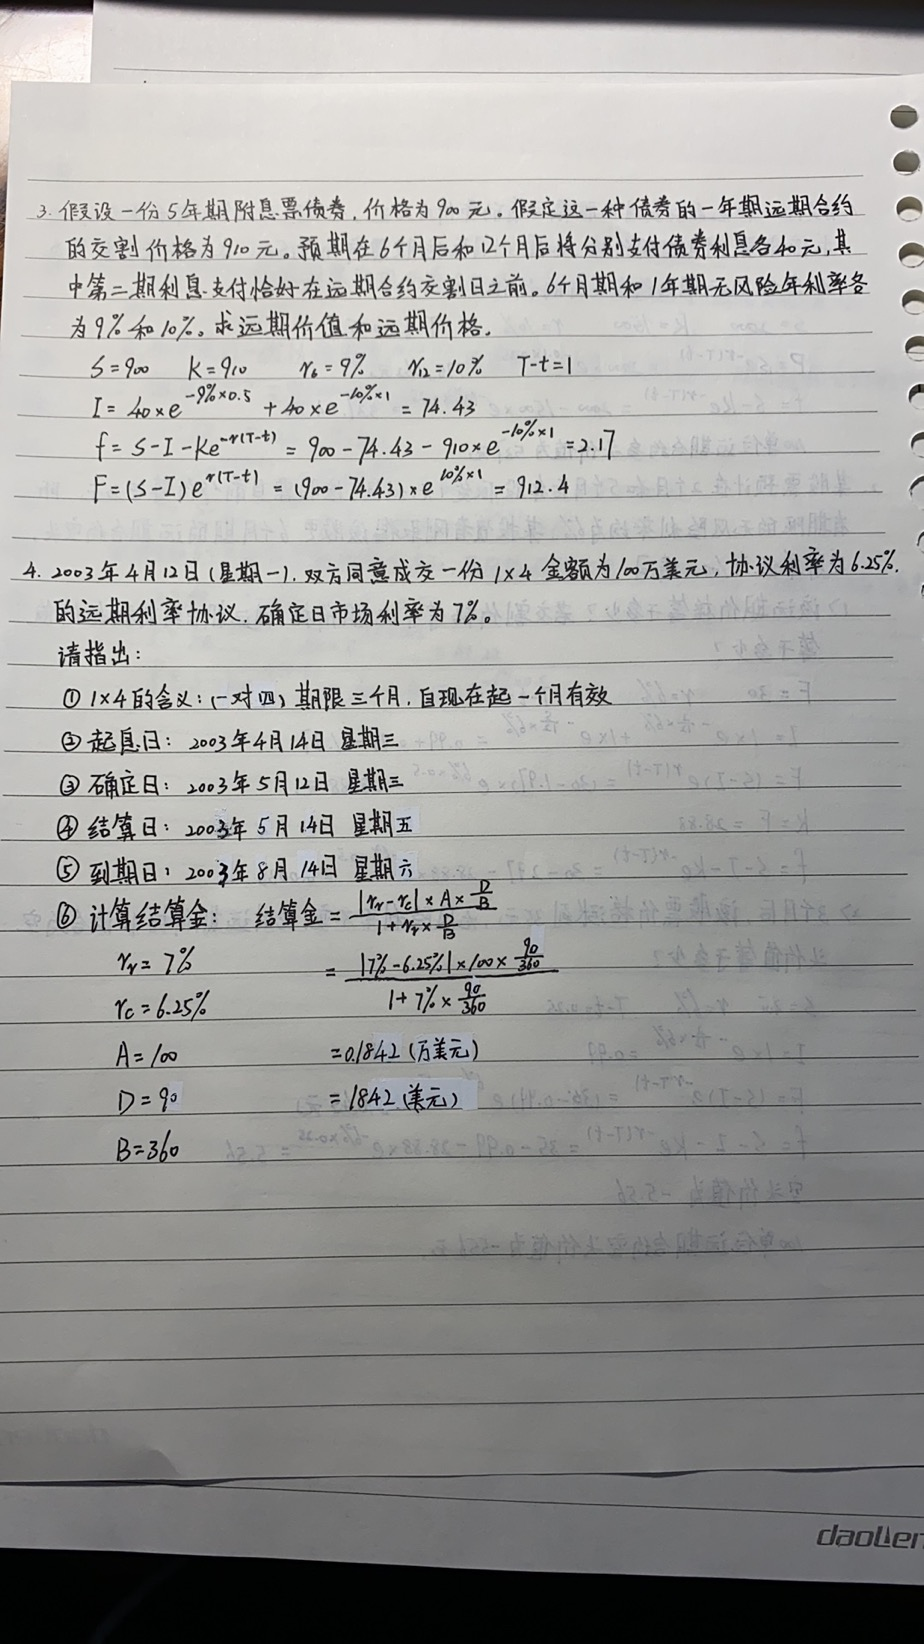 3. 假设一份5年期附息票债券,价格为900元。假定这一种债券的一年期远期合约
的交割价格为910元。预期在6个月后和12个月后将分别支付债券利息各40元,其
中第二期利息支付恰好在远期合约交割日之前。6个月期和1年期无风险年利率各
为9%和10%。求远期价值和远期价格.
S=900 K=910 r₆=9% r₁₂=10% T-t=1
I=40×e^{-9%×0.5}+40×e^{-10%×1}=74.43
f=S-I-Ke^{-r(T-t)}=900-74.43-910×e^{-10%×1}=2.17
F=(S-I)e^{r(T-t)}=(900-74.43)×e^{10%×1}=912.4
4. 2003年4月12日(星期一),双方同意成交一份1×4金额为100万美元,协议利率为6.25%.
的远期利率协议,确定日市场利率为7%。
请指出:
① 1×4的含义:(一对四) 期限三个月,自现在起一个月有效
② 起息日: 2003年4月14日 星期三
③ 确定日: 2003年5月12日 星期三
④ 结算日: 2003年5月14日 星期五
⑤ 到期日: 2003年8月14日 星期六
⑥ 计算结算金: 结算金=\frac{|r_r-r_c|×A×\frac{D}{B}}{1+r_r×\frac{D}{B}}
r_r=7% =\frac{|7%-6.25%|×100×\frac{90}{360}}{1+7%×\frac{90}{360}}
r_c=6.25%
A=100 =0.1842(万美元)
D=90 =1842(美元)
B=360
daollen